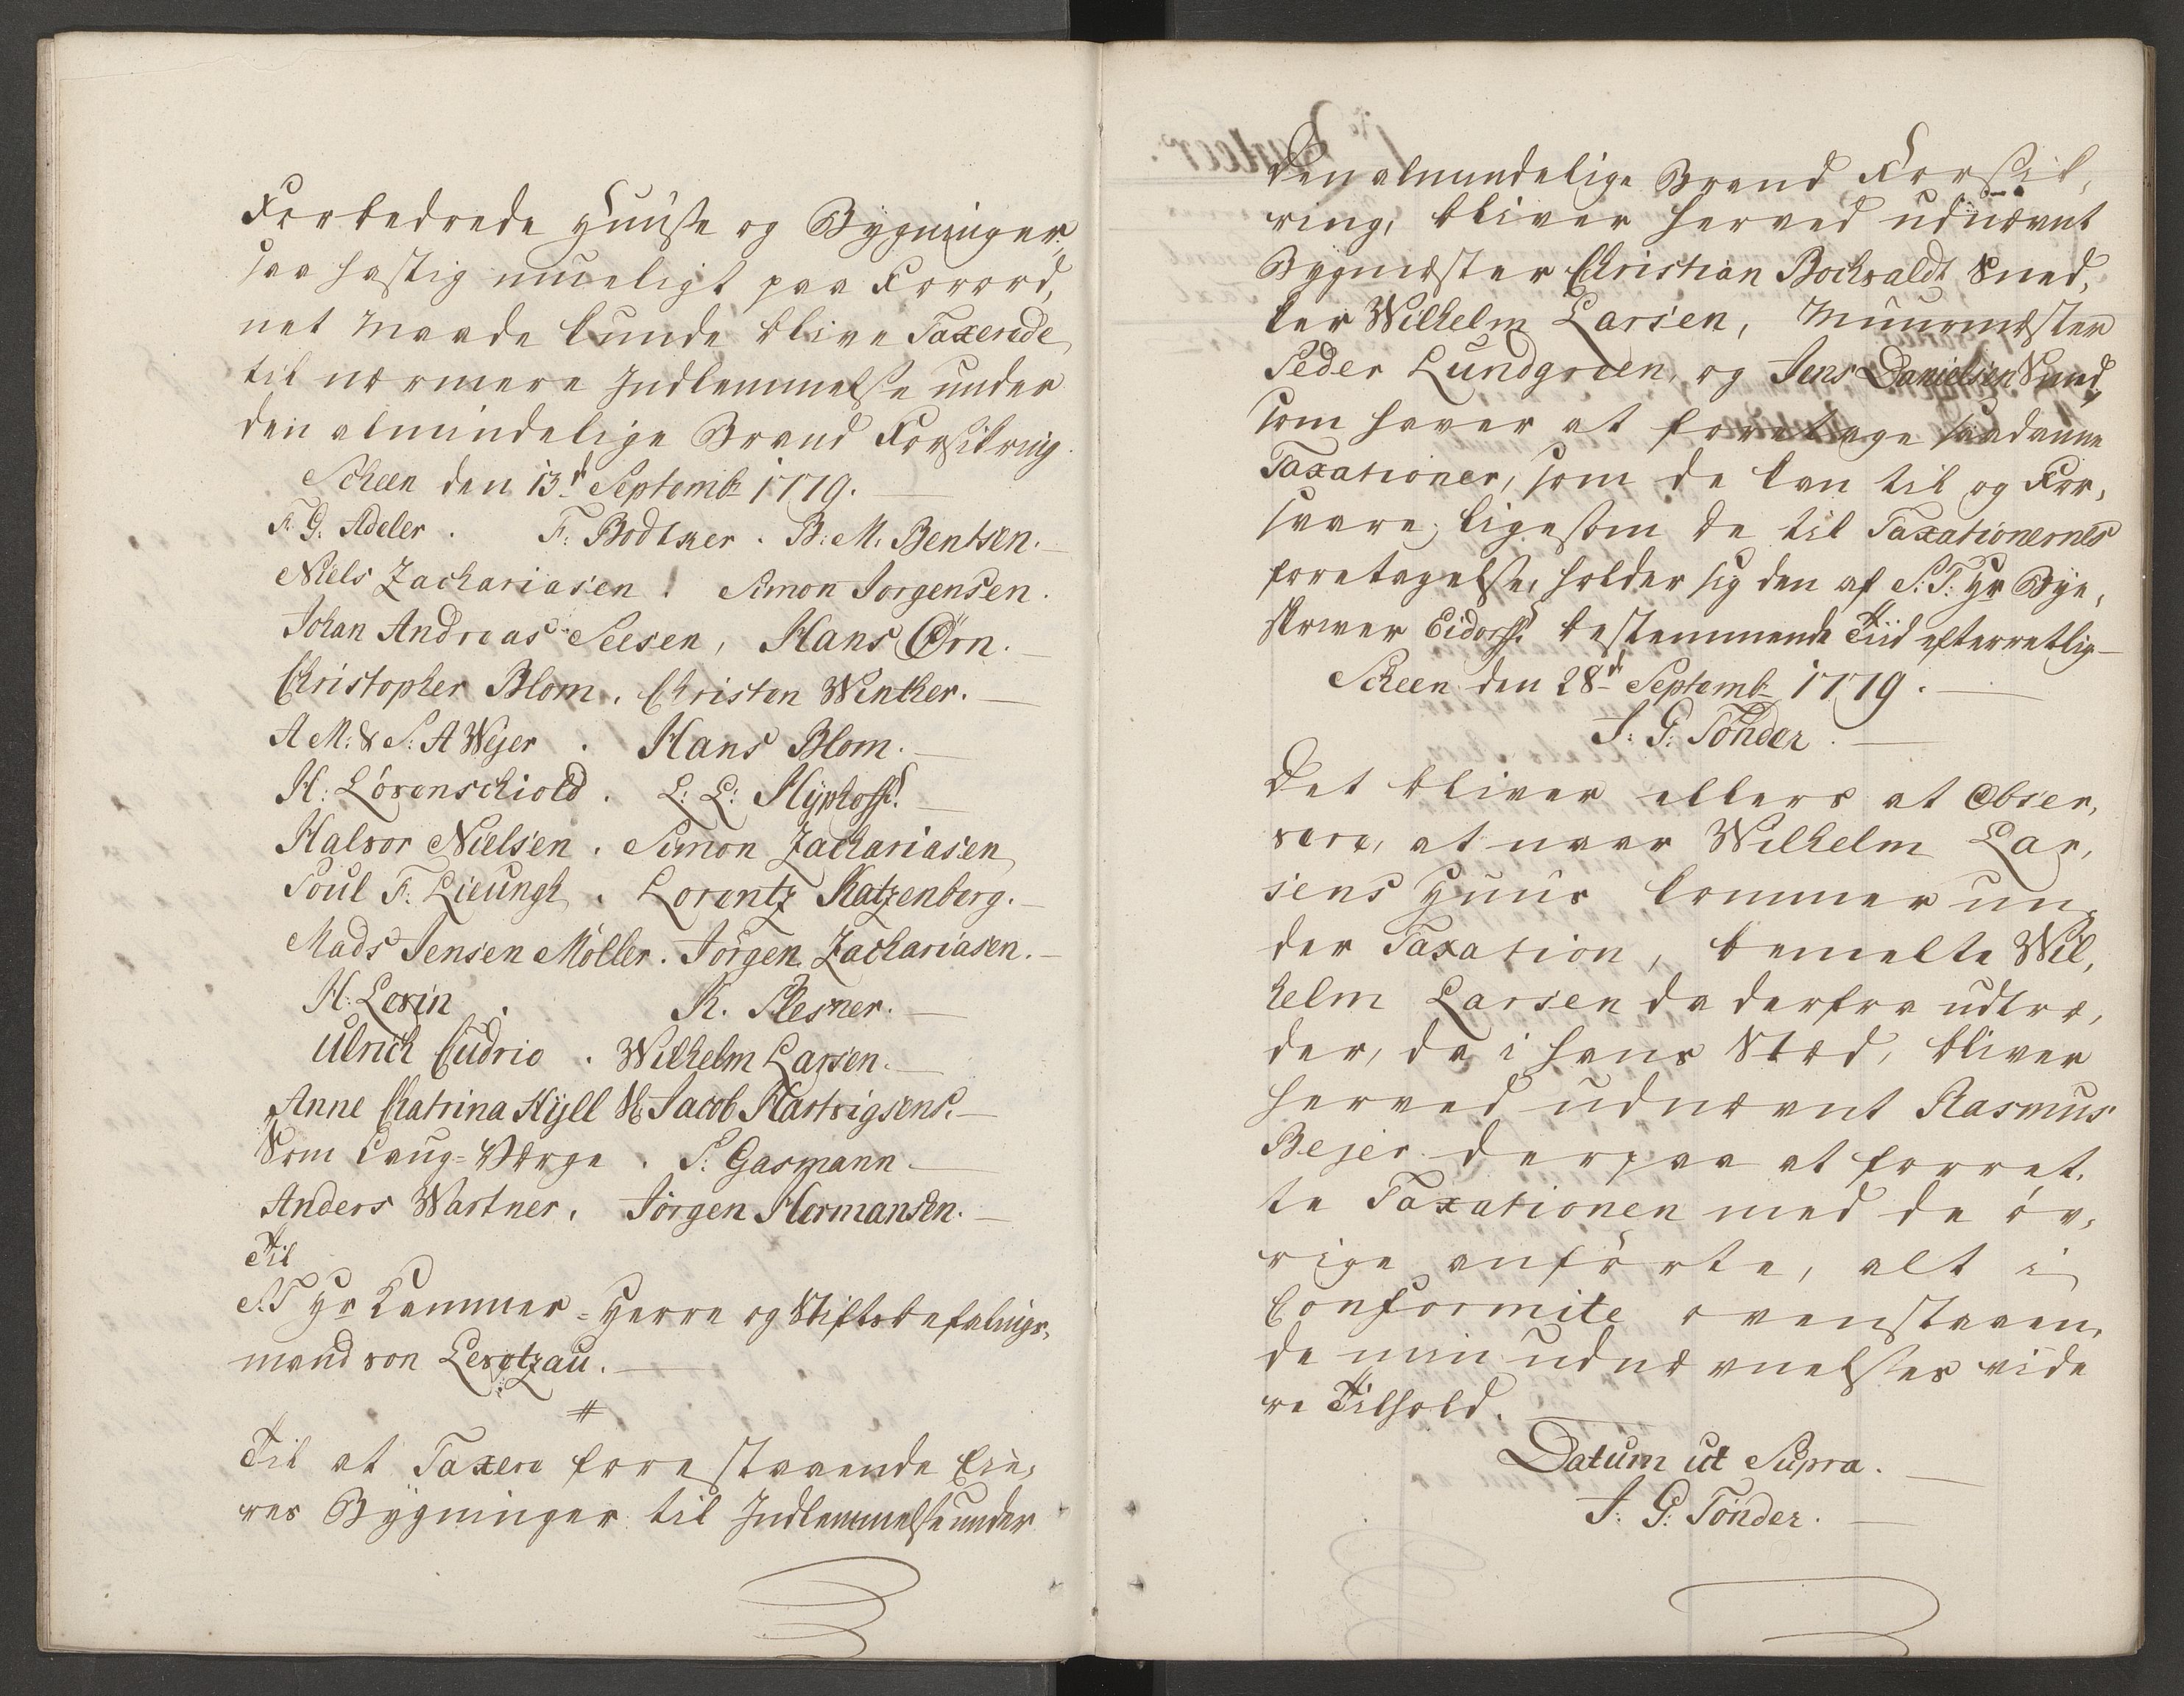 Forbedrede Huuse og Bygninger,
saa hastig mueligt paa Forord,
net Maade kunde blive Taxerede
til nærmere Indlemmelse under
den almindelige Brand Forsikring.
Scheen den 13d Septembr 1779.
F: G: Adeler. F: Bodtker. B: M: Bentsen.
Niels Zachariasen. Simon Jorgensen.
Johan Andreas Seesen, Hans Ørn.
Christopher Blom. Christen Winther.
A M: & S: A Weyer. Hans Blom.
H: Lövenschiold. L: L: Hyphoff.
Halvor Nielsen. Simon Zachariasen
Poul F: Lieungh. Lorentz Katzenberg.
Mads Jensen Möller. Jörgen Zachariasen.
H: Lovin. K. Plesner.
Ulrich Cudrio. Wilhelm Larsen.
Anne Chatrina Kyll Sl. Jacob Hartvigsens.
Som Laug-Værge. S: Gasmann.
Anders Wastner. Jörgen Hermansen.
Til
S. T Hr Kammer-Herre og Stiftsbefalings,
mand von Levetzau.
Til at Taxere forestaaende Eie,
res Bygninger til Indlemmelse under
den almindelige Brand Forsik,
ring, bliver herved udnævnt
Bygmester Christian Bochvaldt Sned,
ker Wilhelm Larsen, Muurmester
Peder Lundgreen, og Jens Danielsen Smed,
som haver at foretage saadanne
Taxationer, som de kan til og For,
svare, ligesom de til Taxationernes
foretagelse, holder sig den af S: T: Hr Bye,
skriver Eidorff bestemmende Tiid efterretlig
Scheen den 28d Septembr 1779.
J: G: Tönder.
Det bliver ellers at Obser,
vere, at naar Wilhelm Lar,
sens Huus kommer un,
der Taxation, bemelte Wil,
helm Larsen da derfra udtræ,
der, da i hans Stæd, bliver
herved udnævnt Rasmus
Bejer derpaa at forret,
te Taxationen med de öv,
rige anförte, alt i
Conformite ovenstaaen,
de min udnævnelses vide
re Tilhold.
Datum ut Supra.
J: G: Tönder.